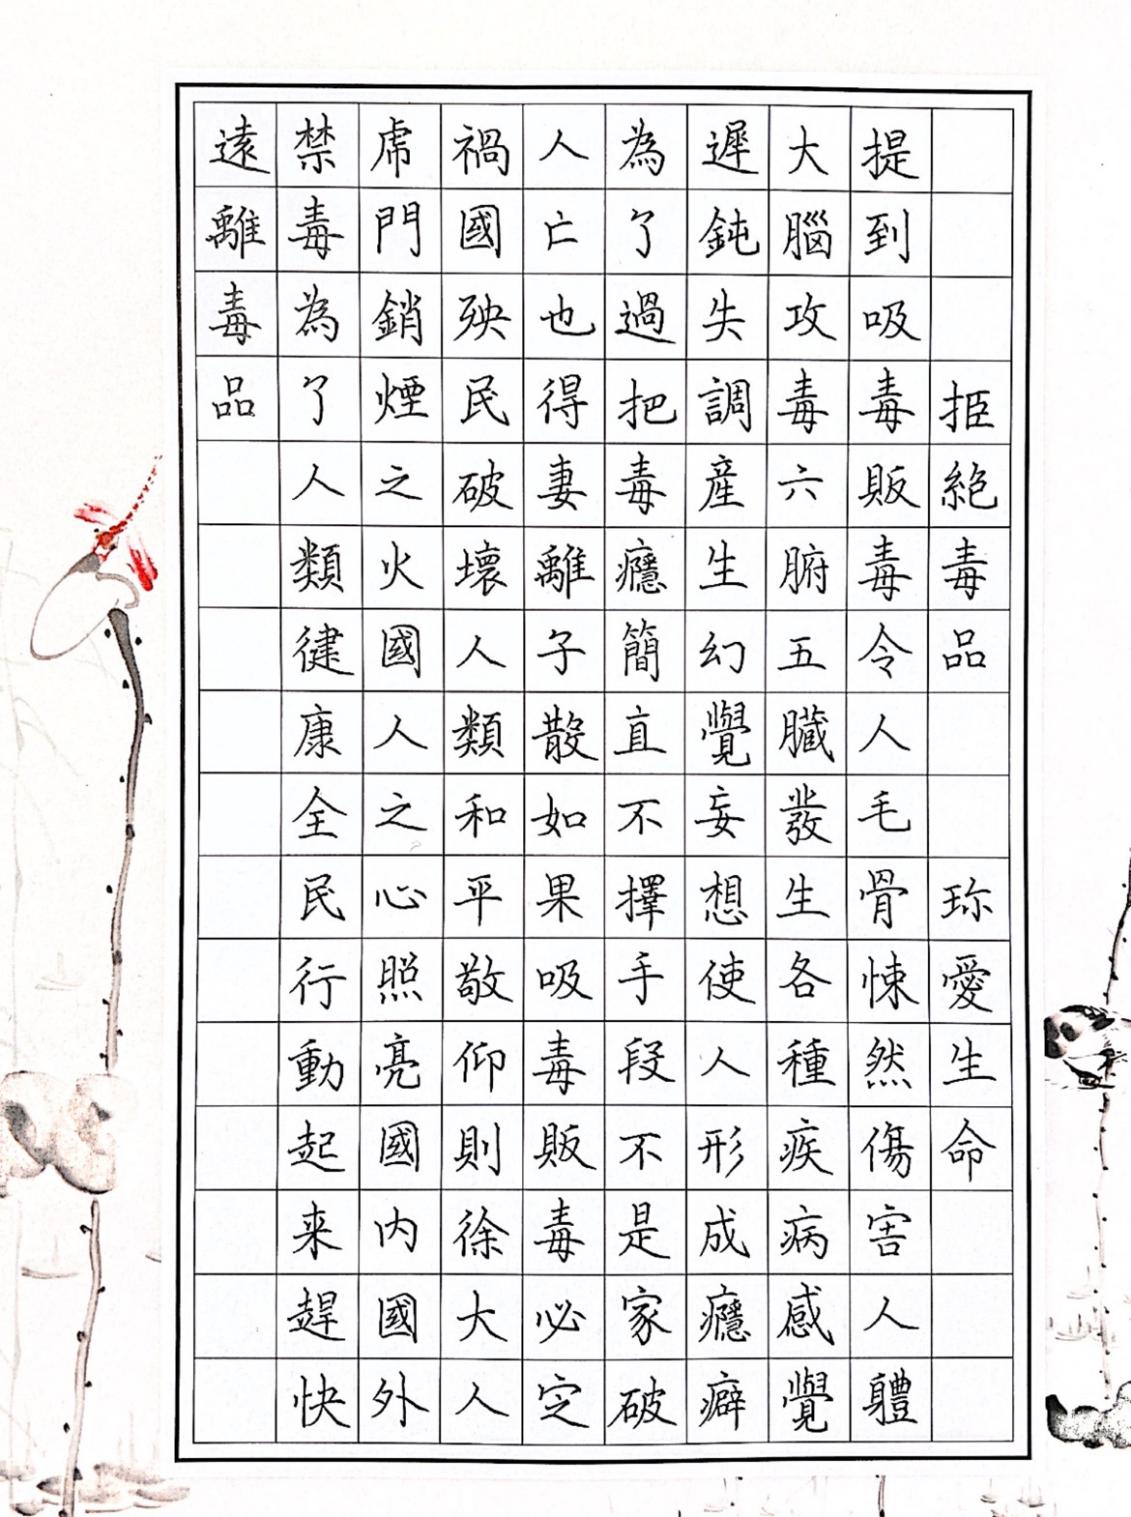 拒絕毒品 珍愛生命
提到吸毒販毒令人毛骨悚然傷害人體
大腦攻毒六腑五臟發生各種疾病感覺
遲鈍失調產生幻覺妄想使人形成癮癖
為了過把毒癮簡直不擇手段不是家破
人亡也得妻離子散如果吸毒販毒必定
禍國殃民破壞人類和平敬仰則徐大人
虎門銷煙之火國人之心照亮國內國外
禁毒為了人類健康全民行動起来趕快
遠離毒品